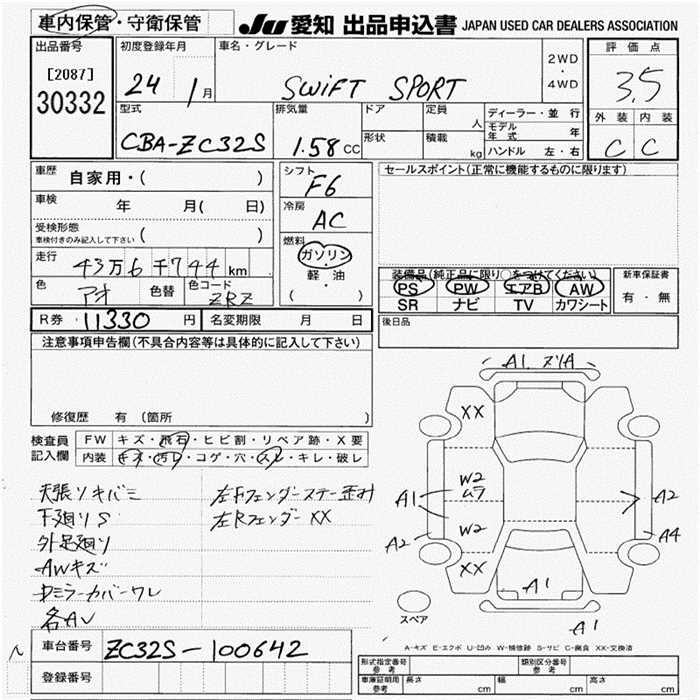 車内保管・守衛保管
JU 愛知 出品申込書 JAPAN USED CAR DEALERS ASSOCIATION
出品番号
[2087]
30332
初度登録年月
24 1月
車名・グレード
SWiFT SPORT
2WD
・
4WD
評価点
3.5
外装 内装
C C
型式
CBA-ZC32S
排気量
1.58cc
ドア
形状
定員 人
積載 kg
ディーラー・並行
モデル年式 年
ハンドル 左・右
車歴 自家用・( )
車検 年 月( 日)
受検形態
車検付きのみ記入して下さい ( )
走行 43万6千744km
色 アオ 色替 色コード ZRZ
シフト
F6
冷房
AC
燃料
ガソリン
・
軽・油
( )
セールスポイント(正常に機能するものに限ります)
装備品(純正品に限り○をつけてください)
PS PW エアB AW
SR ナビ TV カワシート
新車保証書
有・無
R券 11330円 名変期限 月 日
後日品
注意事項申告欄(不具合内容等は具体的に記入して下さい)
修復歴 有(箇所
検査員記入欄
FW キズ・飛石・ヒビ割・リペア跡・X要
内装 キズ・汚レ・コゲ・穴・スレ・キレ・破レ
天張りキバミ
下廻りS
外足廻り
AWキズ
Dミラーカバーワレ
各AU
左Fフェンダーステー歪み
左Rフェンダー XX
A1.
XX
W2
ムラ
A1
A2
W2
A2
A4
XX
A1
A1
スペア
A-キズ E-エクボ U-凹み W-補修跡 S-サビ C-腐食 XX-交換済
車台番号 ZC32S-100642
登録番号
形式指定番号 参考
類別区分番号 参考
車庫証明用 参考 長さ cm 幅 cm 高さ cm